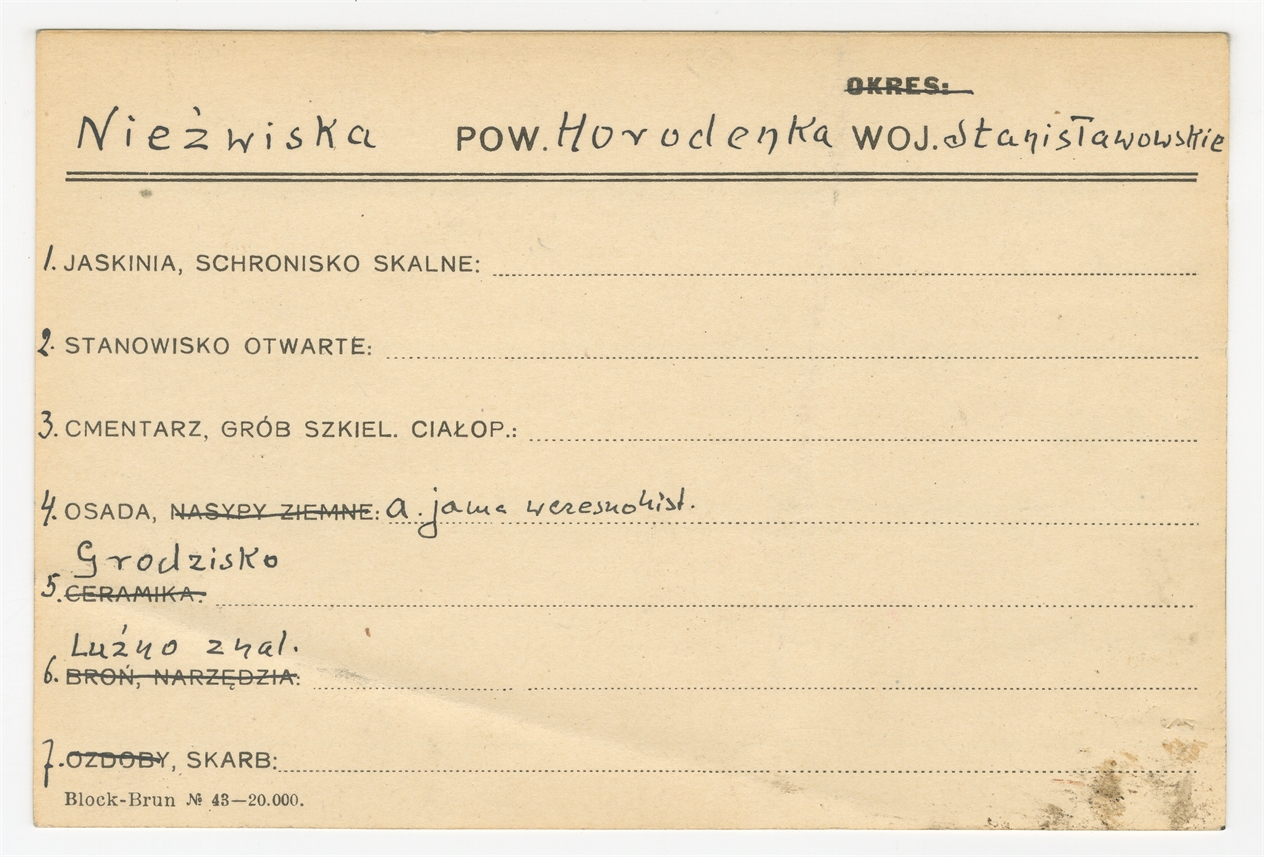 OKRES:
Nieżwiska POW. Horodenka WOJ. Stanisławowskie
1. JASKINIA, SCHRONISKO SKALNE:
2. STANOWISKO OTWARTE:
3. CMENTARZ, GRÓB SZKIEL. CIAŁOP.:
4. OSADA, NASYPY ZIEMNE: a. jama wczesnohist.
Grodzisko
5. CERAMIKA:
Luźno znal.
6. BROŃ, NARZĘDZIA:
7. OZDOBY, SKARB:
Block-Brun № 43—20.000.